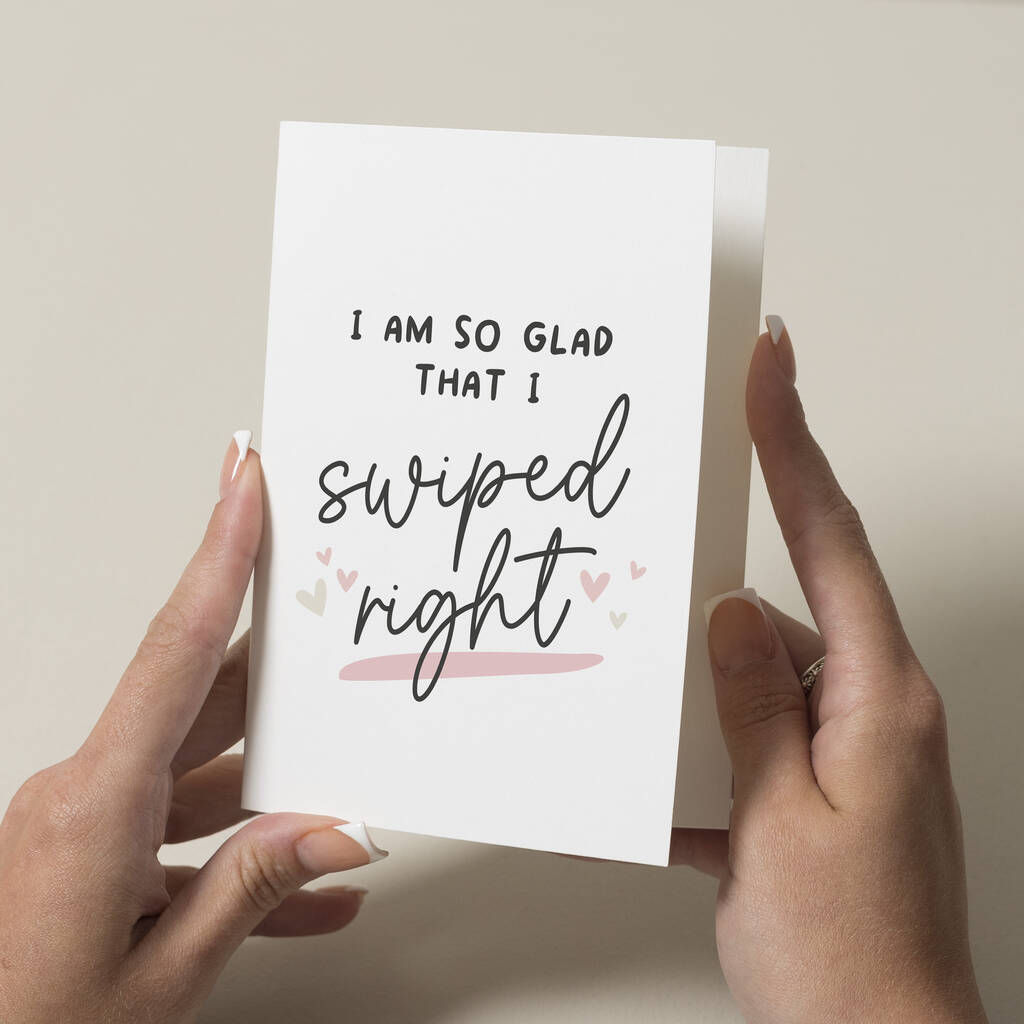 I AM SO GLAD
THAT I
swiped
right